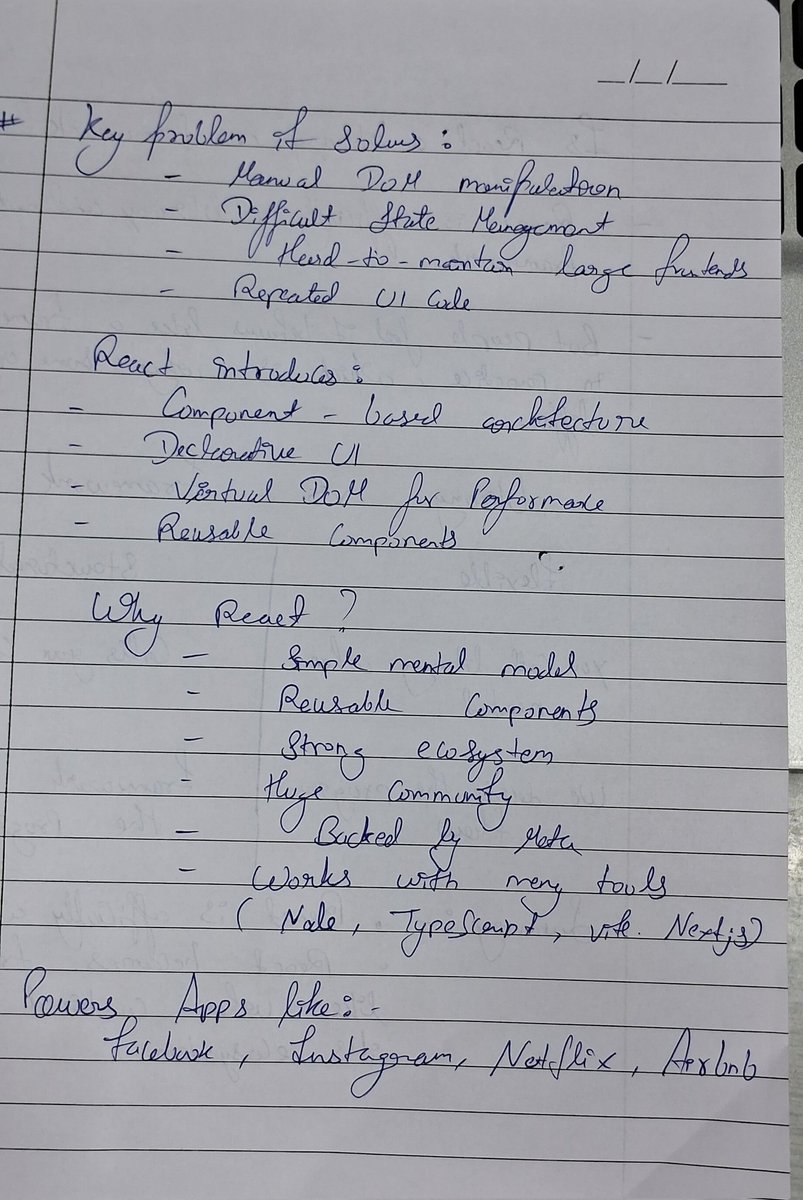 __/__/____
# Key problem it solves :
- Manual DOM manipulation
- Difficult State Management
- Hard-to-maintain large frontends
- Repeated UI Code
React introduces :
- Component - based architecture
- Declarative UI
- Virtual DOM for Performance
- Reusable Components
Why React ?
- Simple mental model
- Reusable Components
- Strong ecosystem
- Huge Community
- Backed by Meta
- Works with many tools
( Node, TypeScript, vite. Next.js)
Powers Apps like:-
Facebook, Instagram, Netflix, Airbnb